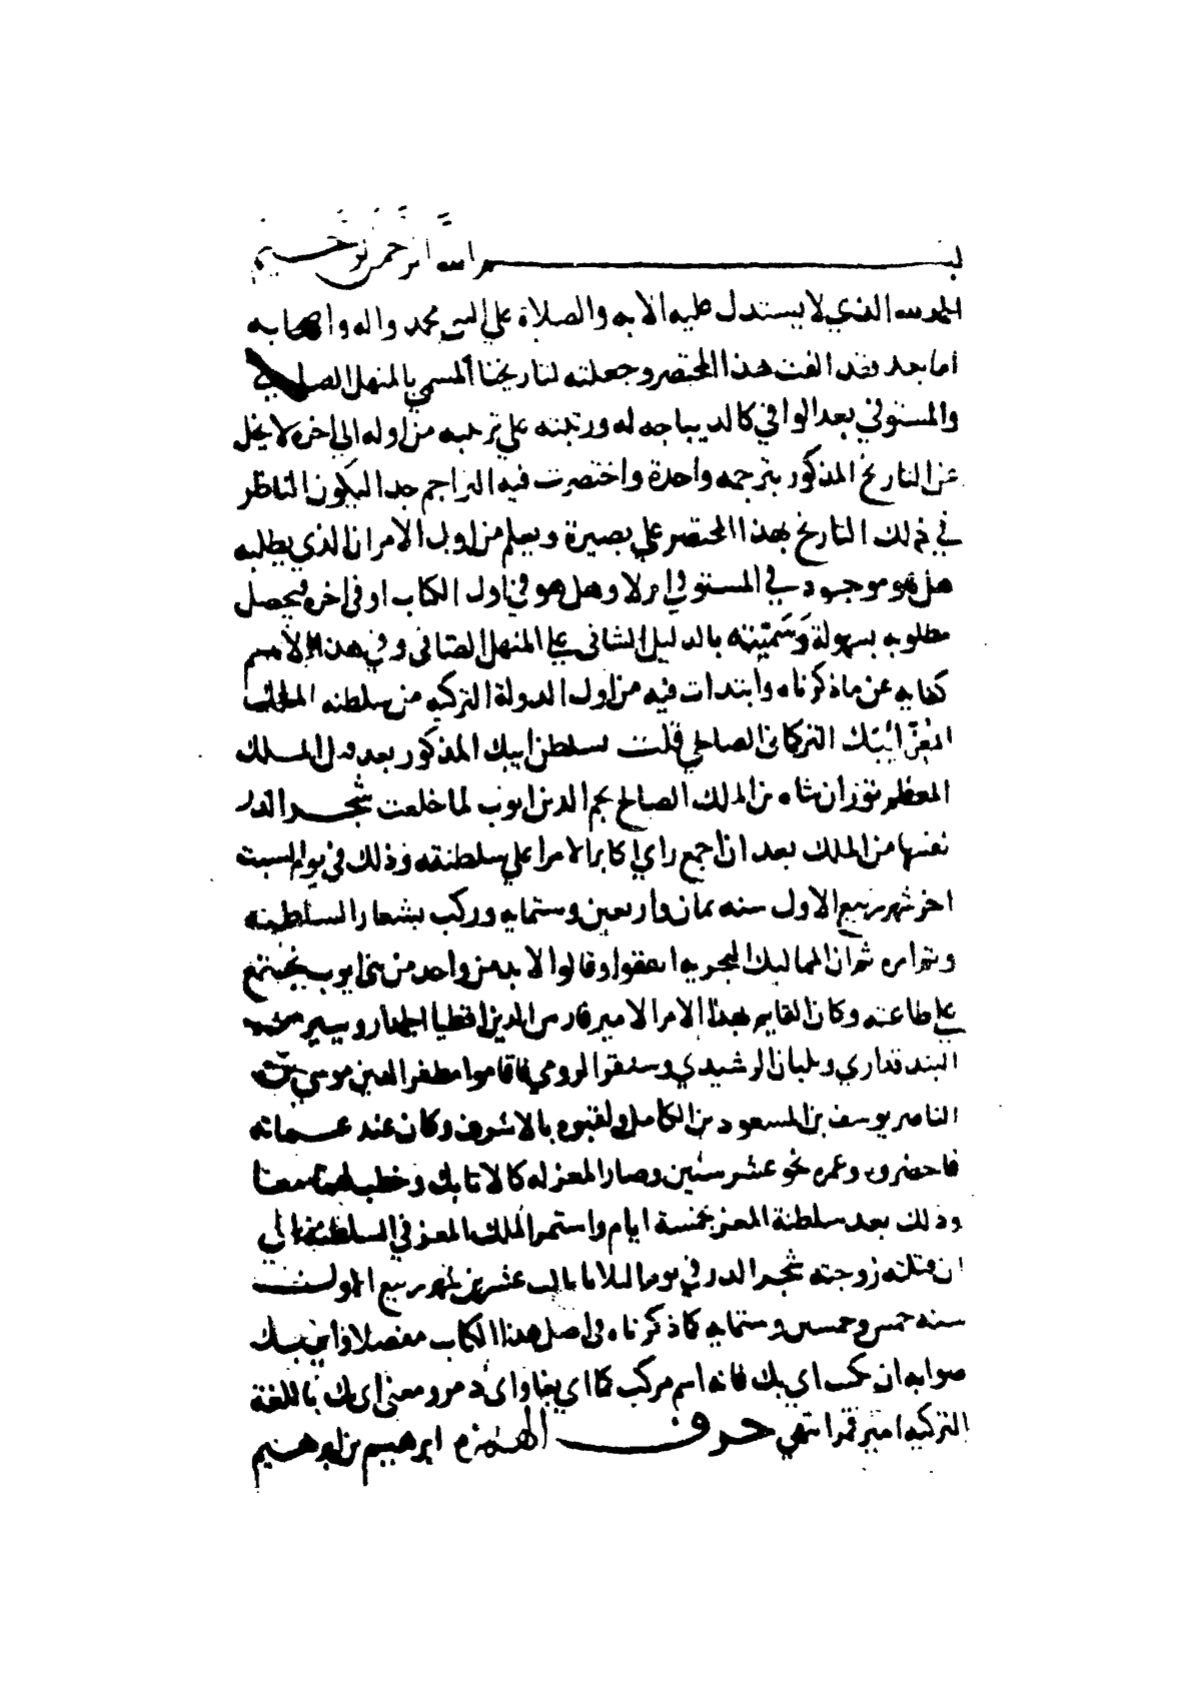 بسم الله الرحمن الرحيم
الحمد لله الذي لا يستدل عليه الا به والصلاة علي النبي محمد واله واصحابه
اما بعد فقد الفت هذا المختصر وجعلته لتاريخنا المسمي بالمنهل الصافي
والمستوفي بعد الوافي كالديباجه له ورتبته علي ترتيبه من اوله الي اخره لا يخل
عن التاريخ المذكور بترجمه واحدة واختصرت فيه التراجم جدا ليكون الناظر
في ذلك التاريخ بهذا المختصر علي بصيرة ويعلم من اول الامر ان الذي يطلبه
هل هو موجود في المستوفي ام لا وهل هو في اول الكتاب او في اخره فيحصل
مطلوبه بسهولة وسميته بالدليل الشافي علي المنهل الصافي وفي هذا الاسم
كفايه عن ما ذكرناه وابتدات فيه من اول الدولة التركيه من سلطنه الملك
المعز ايبك التركماني الصالحي قلت تسلطن ايبك المذكور بعد قتل الملك
المعظم توران شاه بن الملك الصالح نجم الدين ايوب لما خلعت شجر الدر
نفسها من الملك بعد ان اجمع راي اكابر الامرا علي سلطنته وذلك في يوم السبت
اخر شهر ربيع الاول سنه ثمان واربعين وستمايه وركب بشعار السلطنه
وتم امره ثم ان المماليك البحريه اتفقوا وقالوا لا بد من واحد من بني ايوب يجتمع
علي طاعته وكان القايم بهذا الامر الامير فارس الدين اقطيا الجمدار وبيبرس
البندقداري وبلبان الرشيدي وسنقر الرومي فاقاموا مظفر الدين موسي بن
الناصر يوسف بن المسعود بن الكامل ولقبوه بالاشرف وكان عند عماته
فاحضروه وعمره نحو عشر سنين وصار المعز له كالاتابك وخطب لهما معا
وذلك بعد سلطنة المعز بخمسة ايام واستمر الملك المعز في السلطنة الي
ان قتلته زوجته شجر الدر في يوم الثلاثا ثالث عشرين شهر ربيع الاول
سنه خمس وخمسين وستمايه كما ذكرناه في اصل هذا الكتاب مفصلا وايبك
صوابه ان يكتب اي بك فانه اسم مركب كما اي يغا واي دمر ومعني اي بك باللغة
التركيه امير قمر انتهي حرف الهمزه ابرهيم بن ابرهيم